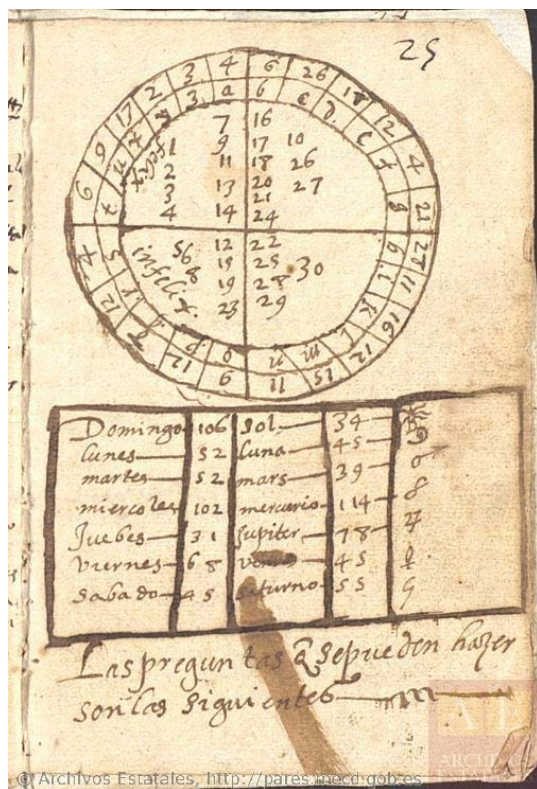 25
4 6 26 18 12 4 21 27 11 16 12 15 11 9 12 12 4 6 9 13 2 3
a b c d e f g h i k l m n o p q r s t u x y z
7 16
1 9 17 10
2 11 18 26
3 13 20 27
21
4 14 24
felix
12 22
5 6 8 15 25 30
infelix. 19 28
23 29
Domingo 106 sol 34
lunes 52 luna 45
martes 52 mars 39
miercoles 102 mercurio 114 ☿
Juebes 31 Jupiter 78 ♃
viernes 68 venus 45 ♀
sabado 45 saturno 55
Las preguntas q̃ sepueden hazer
son las siguientes
ARCHIVOS
ESTATALES
© Archivos Estatales, http://pares.mecd.gob.es